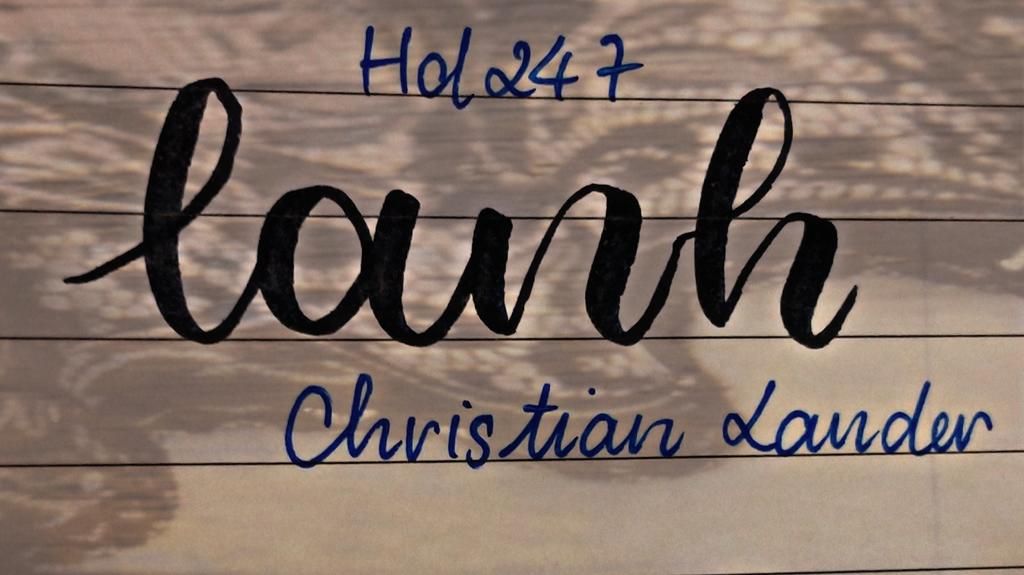 Hol 247
lanh
Christian Lander